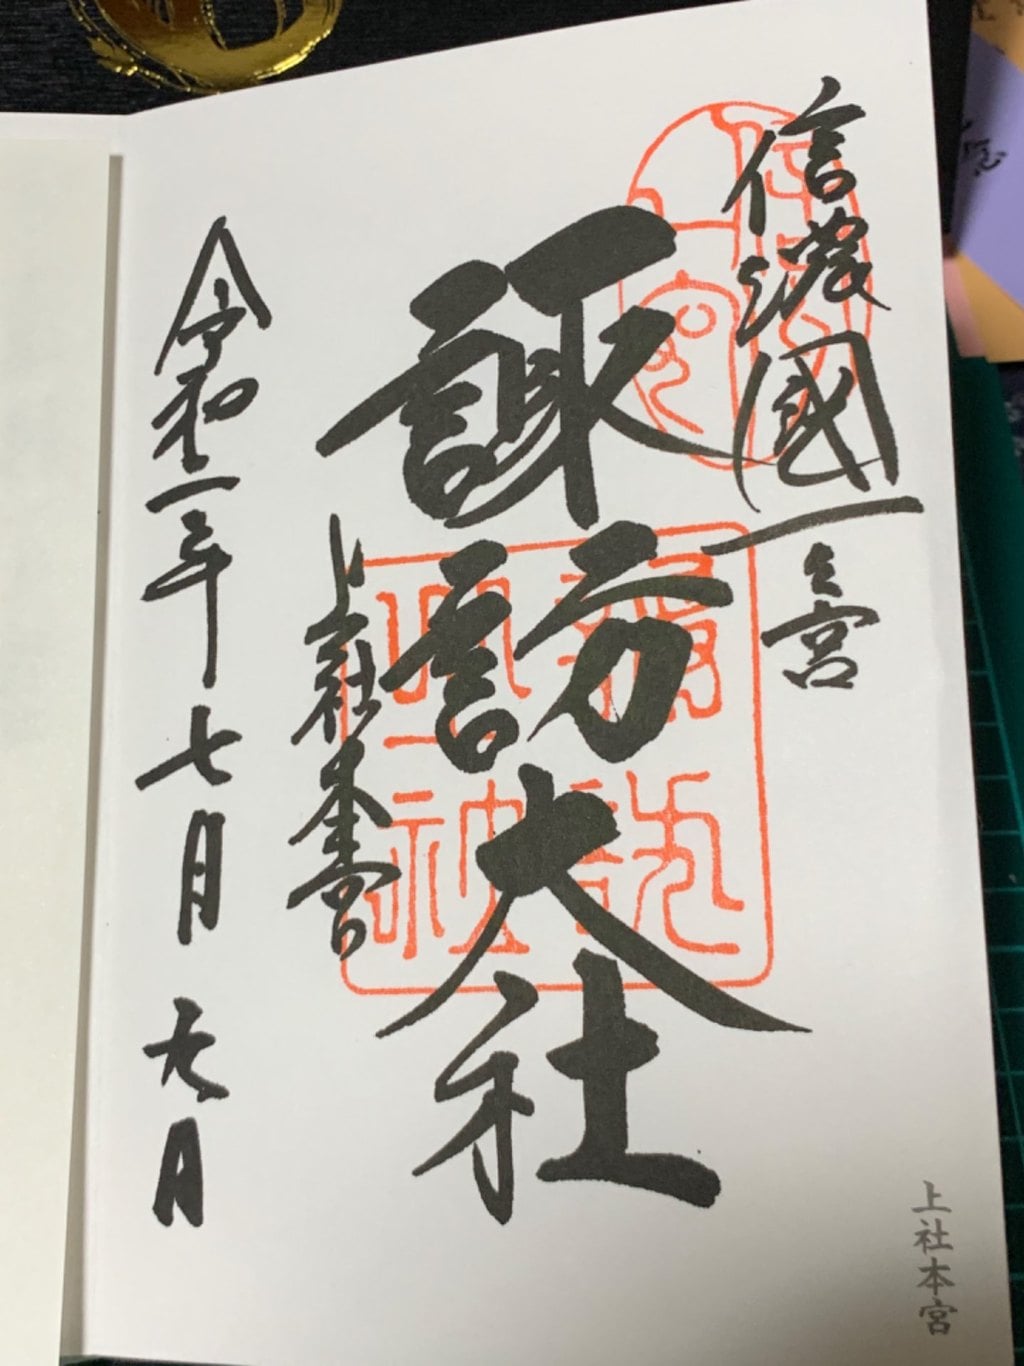 信濃國一之宮
諏訪大社
上社本宮
令和二年七月九日
上社本宮